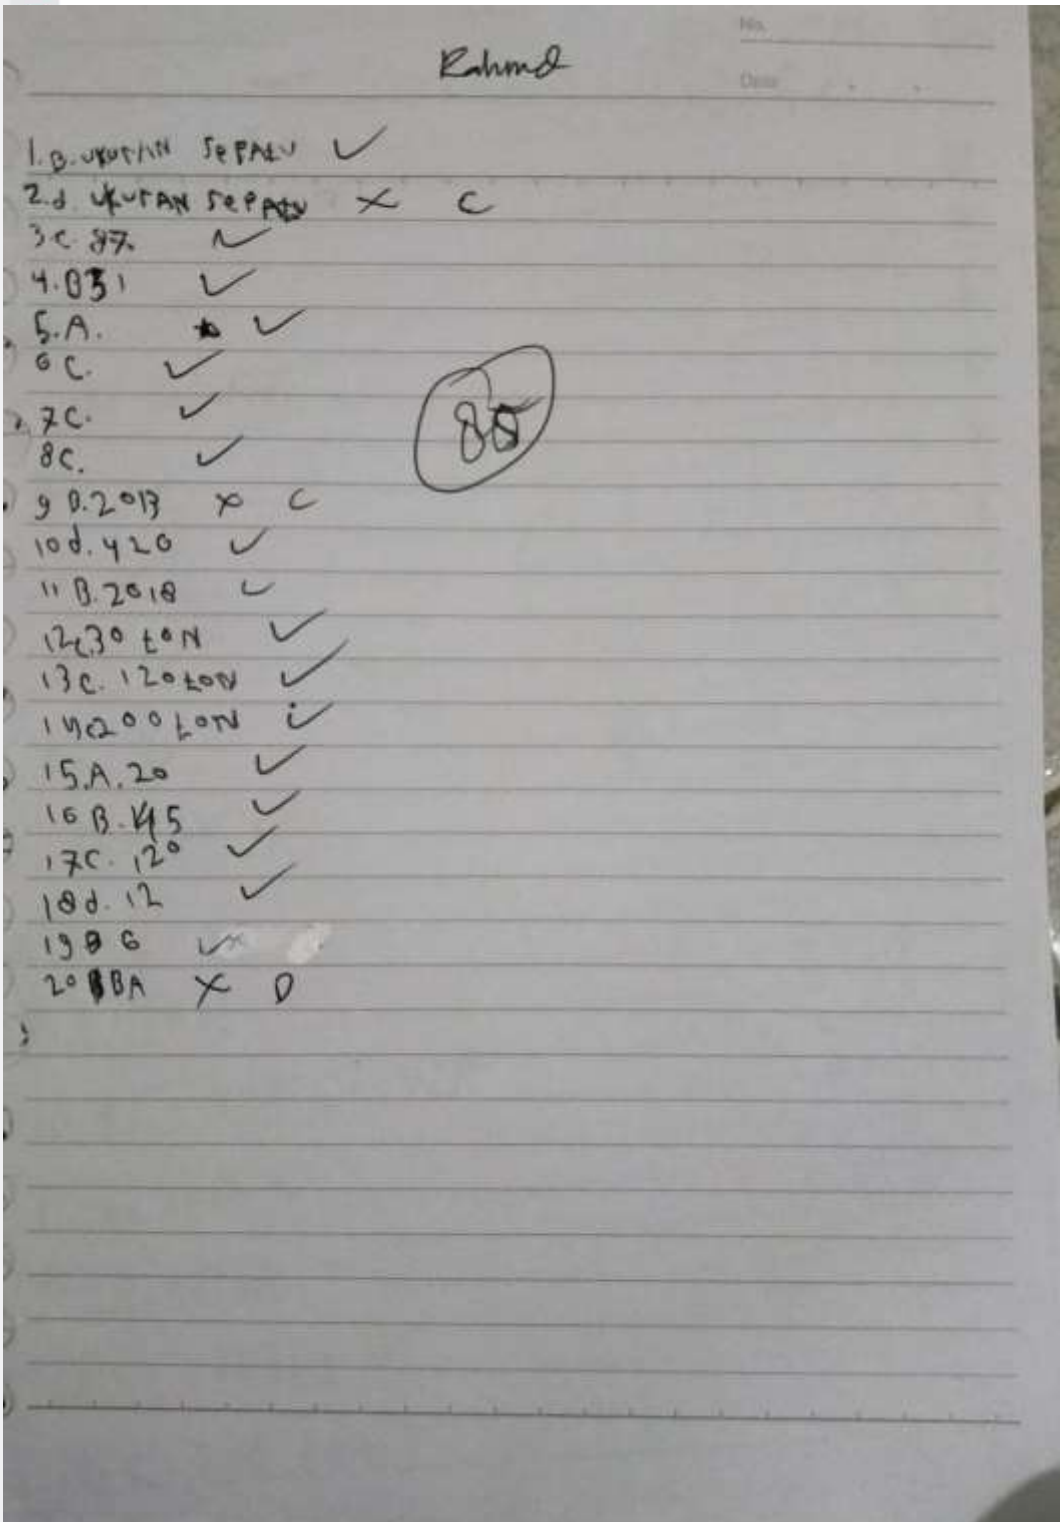 No.
Rahmd
Date
1. B. UKURAN SePAtU ✓
2. d. UKURAN SePAtU × C
3 c. 87. ✓
4. B 31 ✓
5. A. ✓
6 C. ✓
7 C. ✓
8 C. ✓
85
9 D. 2013 × C
10 d. 420 ✓
11 B. 2018 ✓
12 c 30 toN ✓
13 c. 120 toN ✓
14 c 200 toN ✓
15. A. 20 ✓
16 B. 145 ✓
17 C. 120 ✓
18 d. 12 ✓
19 B 6 ✓
20 BA × D